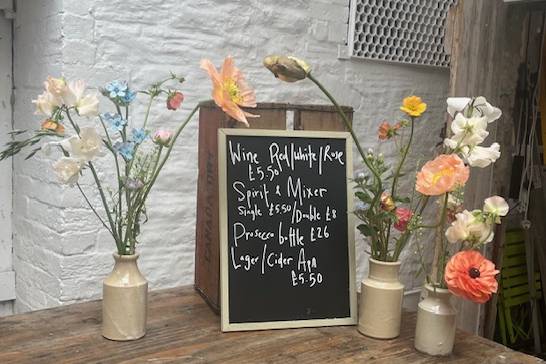 Wine Red/White/Rose
£5.50
Spirit & Mixer
Single £5.50/Double £8
Prosecco bottle £26
Lager/Cider
£5.50
CANADA DRY